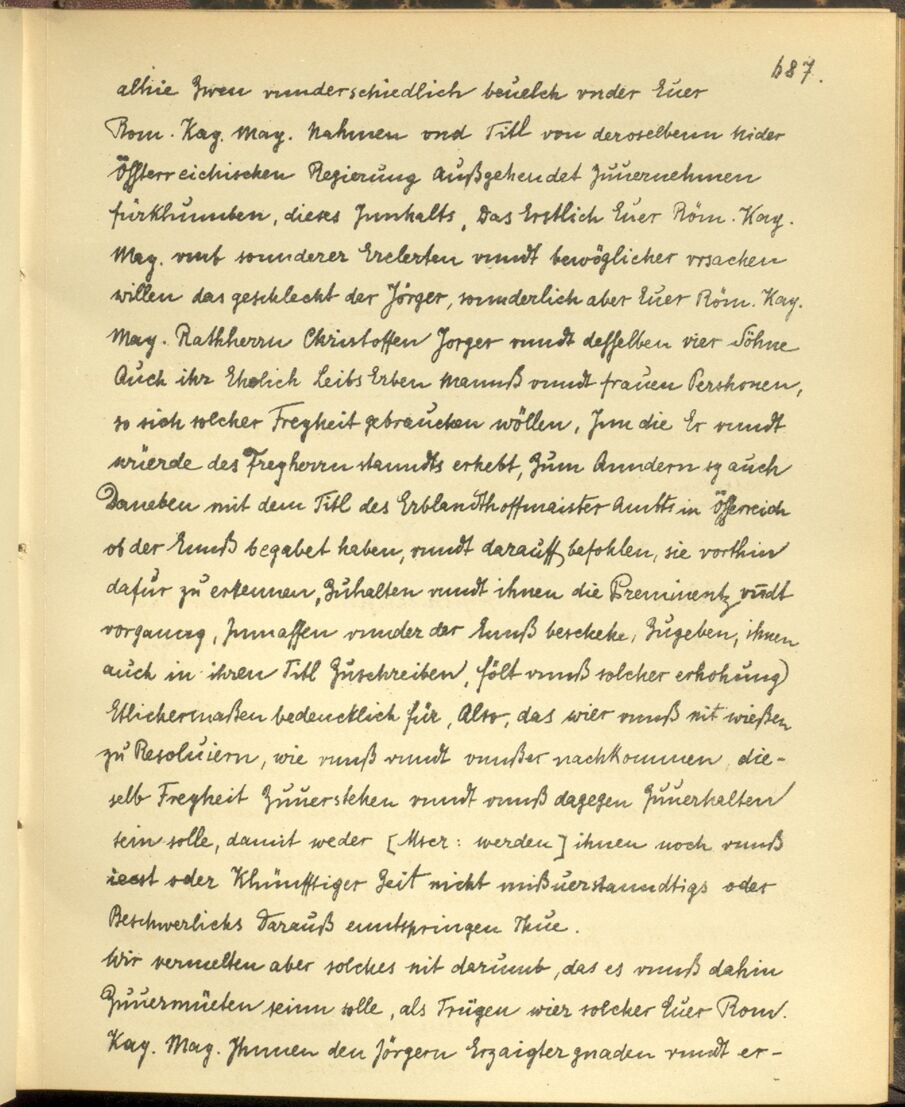 687.
alhie Zwen vnnderschiedlich beuelch vnder Euer
Rom. Kay. May. Nahmen vnd Titl von deroselbenn Nider
Össterreichischen Regierung Außgehendet Zuuernehmen
fürkhumben, dieses Innhalts, Das Erstlich Euer Röm. Kay.
May. vmb sonnderer Erclerten vnndt bewöglicher vrsachen
willen das geschlecht der Jörger, sonnderlich aber Euer Röm. Kay.
May. Rathherrn Christoffen Jorger vnndt desselben vier Söhne
Auch ihr Ehelich Leibs Erben Mannß vnndt frauen Pershonen,
so sich solcher Freyheit gebrauchen wöllen, Inn die Er vnndt
würde des Freyherrn stanndts erhebt, Zum Anndern sy auch
Daneben mit dem Titl des Erblandthoffmaister Ambts in Össerreich
ob der Ennß begabet haben, vnndt darauff befohlen, sie vorthin
dafur zu erkennen, Zuhalten vnndt ihnen die Preminentz vndt
vorganng, Innmassen vnnder der Ennß beschehe, Zugeben, ihnen
auch in ihren Titl Zuschreiben, fölt vnnß solcher erhohung
Etlichermaßen bedencklich für, Also, das wier vnnß nit wießen
zu Resoluiern, wie vnnß vnndt vnnßer nachkommen, die-
selb Freyheit Zuuerstehen vnndt vnnß dagegen Zuuerhalten
sein solle, damit weder [Mscr: werden] ihnen noch vnnß
iecst oder Khünfftiger Zeit nicht mißuerstanndtigs oder
Beschwerlichs Darauß enntspringen Thue.
Wir vermelten aber solches nit darumb, das es vnnß dahin
Zuuermüeten seinn solle, als Trügen wier solcher Euer Rom.
Kay. May. Ihnnen den Jörgern Erzaigter gnaden vnndt er-